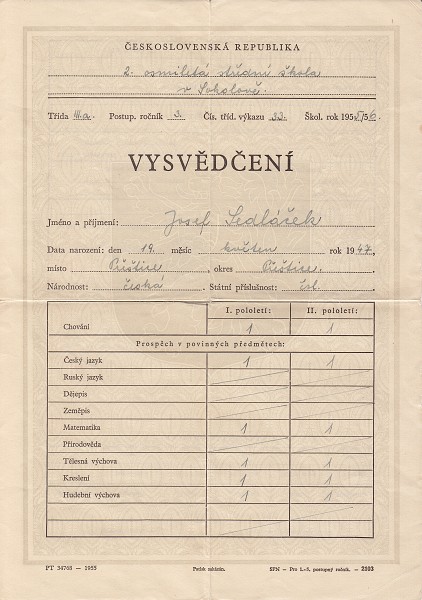 ČESKOSLOVENSKÁ REPUBLIKA
2. osmiletá střední škola
v Sokolově.
Třída III.a. Postup. ročník 3. Čís. tříd. výkazu 32. Škol. rok 1955/56.
VYSVĚDČENÍ
Jméno a příjmení: Josef Sedláček
Data narození: den 19. měsíc květen rok 1947,
místo Přeštice, okres Přeštice.
Národnost: česká Státní příslušnost: čsl.
I. pololetí: II. pololetí:
Chování 1 1
Prospěch v povinných předmětech:
Český jazyk 1 1
Ruský jazyk
Dějepis
Zeměpis
Matematika 1 1
Přírodověda
Tělesná výchova 1 1
Kreslení 1 1
Hudební výchova 1 1
PT 34768 — 1955 Padak zakázán. SPN — Pro 1.-5. postupný ročník. — 2993